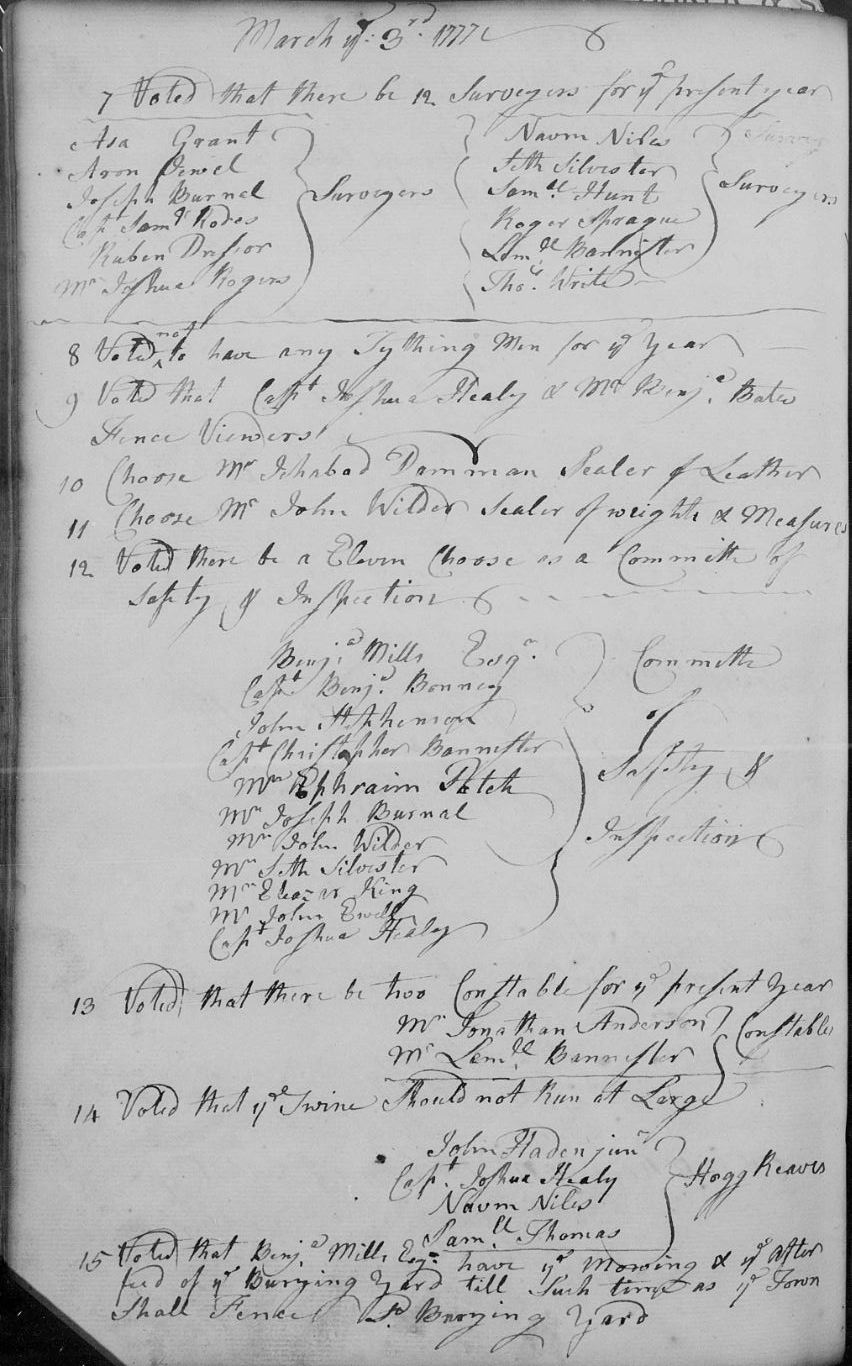 March ye 3rd 1777
7 Voted that there be 12 Surveyers for ye present year
Asa Grant
Aron Jewel
Joseph Burnel
Capt Samll Rodes
Ruben Dressor
Mr Joshua Rogers
Surveyers
Naom Niles
Seth Silvester
Samll Hunt
Roger Sprague
Lemll Bannister
Thos Write
Surveyers
8 Voted not to have any Tything Men for ye Year
9 Voted that Capt Joshua Healy & Mr Benja Bates
Fence Viewers
10 Choose Mr Ichabod Damman Sealer of Leather
11 Choose Mr John Wilder Sealer of weights & Measures
12 Voted there be a Eleven Choose as a Committe of
Safety & Inspection
Benja Mills Esqr
Capt Benja Bonney
John Stephenson
Capt Christopher Bannester
Mr Ephraim Patch
Mr Joseph Burnal
Mr John Wilder
Mr Seth Silvester
Mr Eleazar King
Mr John Ewell
Capt Joshua Healy
Committe
of
Safety &
Inspection
13 Voted that there be two Constable for ye present Year
Mr Jonathan Anderson
Mr Lemll Bannester
Constables
14 Voted that ye Swine Should not Run at Large
John Haden junr
Capt Joshua Healy
Naom Niles
Samll Thomas
Hogg Reaves
15 Voted that Benja Mills Esqr have ye Mowing & ye After
feed of ye Burying Yard till Such time as ye Town
Shall Fence Sd Burying Yard